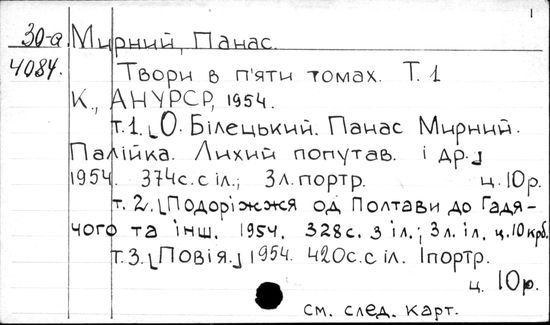 1
30-а Мирний, Панас.
4084. Твори в п'яти томах. Т. 1
К., АНУРСР, 1954.
т. 1. [О. Білецький. Панас Мирний.
Палійка. Лихий попутав. і др.]
1954. 374с. с іл.; 3л. портр. ц. 10р.
т. 2. [Подоріжжя од Полтави до Гадя-
чого та інш. 1954. 328с. з іл.; 3л. іл. ц. 10 крб.
т. 3. [Повія.] 1954. 420с. с іл. 1портр.
ц. 10р.
см. след. карт.